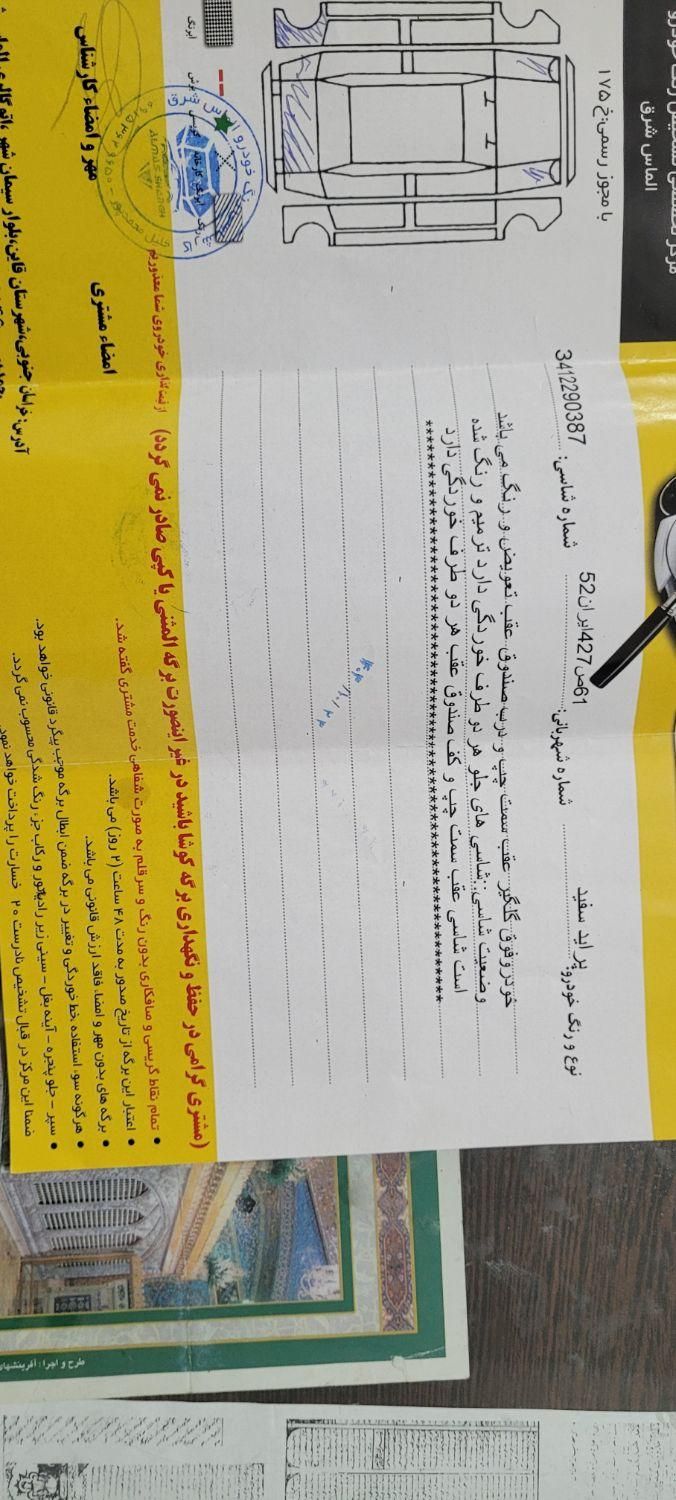 مرکز تخصصی تشخیص رنگ خودرو
الماس شرق
با مجوز رسمی:خ ۱۷۵
نوع و رنگ خودرو: پراید سفید شماره شهربانی: 61ص427ایران52 شماره شاسی: 3412290387
خودرو فوق گلگیر عقب سمت چپ و درب صندوق عقب تعویض و رنگ می باشد
وضعیت شاسی: شاسی های جلو هر دو طرف خوردگی دارد ترمیم و رنگ شده
است شاسی عقب سمت چپ و کف صندوق عقب هر دو طرف خوردگی دارد
(مشتری گرامی در حفظ و نگهداری برگه کوشا باشید در غیر اینصورت برگه المثنی یا کپی صادر نمی گردد)
• تمام نقاط گریسی و صافکاری بدون رنگ و سر قلم به صورت شفاهی خدمت مشتری گفته شد.
• اعتبار این برگه از تاریخ صدور به مدت ۴۸ ساعت (۲ روز) می باشد.
• برگه های بدون مهر و امضاء فاقد ارزش قانونی می باشد.
• هرگونه سوء استفاده ,خط خوردگی و تغییر در برگه ضمن ابطال برگه موجب پیگرد قانونی خواهد بود.
• سپر - جلو پنجره - آینه بغل - سینی زیر رادیاتور و رکاب جزء رنگ شدگی محسوب نمی گردد.
امضاء مشتری
مهر و امضاء کارشناس
ALMAS SHARGH
طرح و اجرا : آفرینشهای